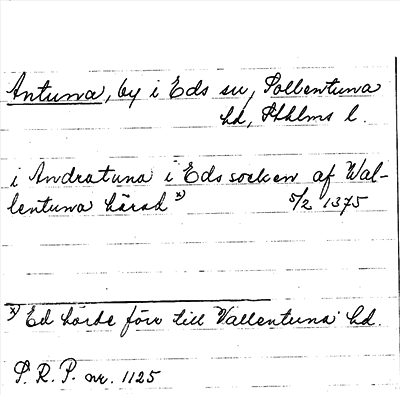 Antuna, by i Eds sn, Sollentuna
hd, Sthlms l.
i Andratuna i Eds socken af Wal-
lentuna härad x) 5/2 1375
x) Ed hörde förr till Wallentuna hd.
S. R. P. nr. 1125